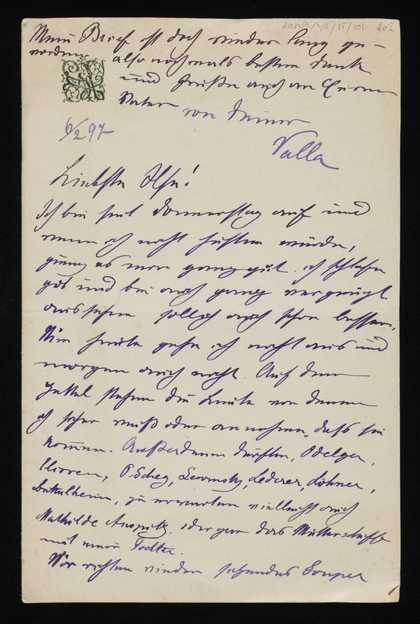 Mein Brief ist doch wieder lang ge-
worden, also nochmals besten Dank
und Grüße auch an Euren
Vater von Deiner
Valla
6/2 97
Liebste Ilse!
Ich bin seit Donnerstag auf und
wenn ich nicht husten würde,
ging es mir ganz gut. Ich schlafe
gut und bin auch ganz vergnügt
aussehen soll ich auch schon besser.
Nur heute gehe ich nicht aus und
morgen auch nicht. Auf dem
Zettel stehen die Leute von denen
ich sicher weiß oder annehme, daß sie
kommen. Außerdem dürften, Odelga,
Lederer, Löhner,
zu erwarten vielleicht auch
Mathilde oder gar das
mit einer Tochter.
Wir richten wieder Souper